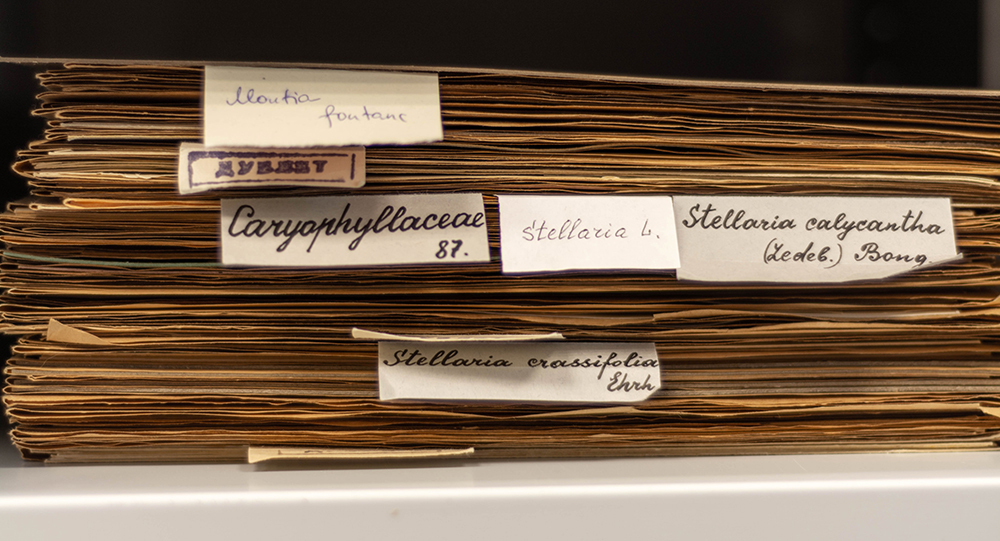 Montia
fontana
ДУБЛЕТ
Caryophyllaceae
87.
Stellaria L.
Stellaria calycantha
(Ledeb.) Bong.
Stellaria crassifolia
Ehrh